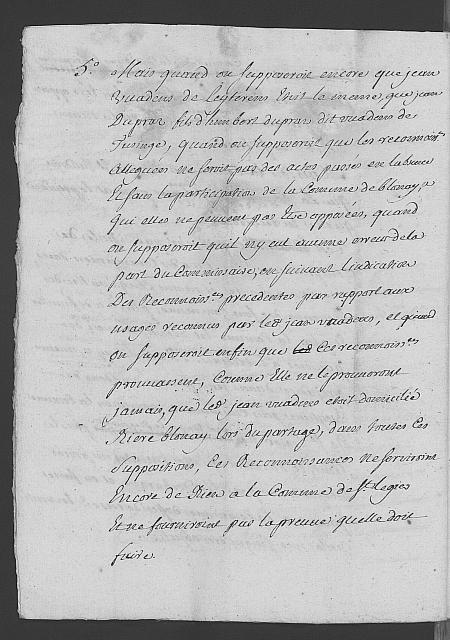 5.° Mais quand on supposeroit encore que jean
Vuadens de Leyterens Etoit le meme, que jean
Dupraz fils d'humbert dupraz dit vuadens de
quand on supposeroit que les reconnoiss.
alleguées ne seroit pas des actes passés en labsence
Et sans la participation de la Commune de blonay, a
qui elles ne peuvent pas Etre opposées, quand
on supposeroit quil ny eut aucune erreur de la
part du Commissaire, en suivant lindication
Des Reconnoiss.ces precedentes par rapport aux
usages reconnus par led. jean vuadens, et quand
on supposeroit enfin que Ces reconnoiss.ces
prouvassent, Comme Elle ne le prouveront
jamais, que led. jean vuadens etoit domicilié
Riere blonay lors du partage, dans toutes Ces
suppositions, Ces Reconnoissances ne serviroint
Encore de Rien a la Commune de St. Legier
Et ne fourniroint pas la preuve quelle doit
faire